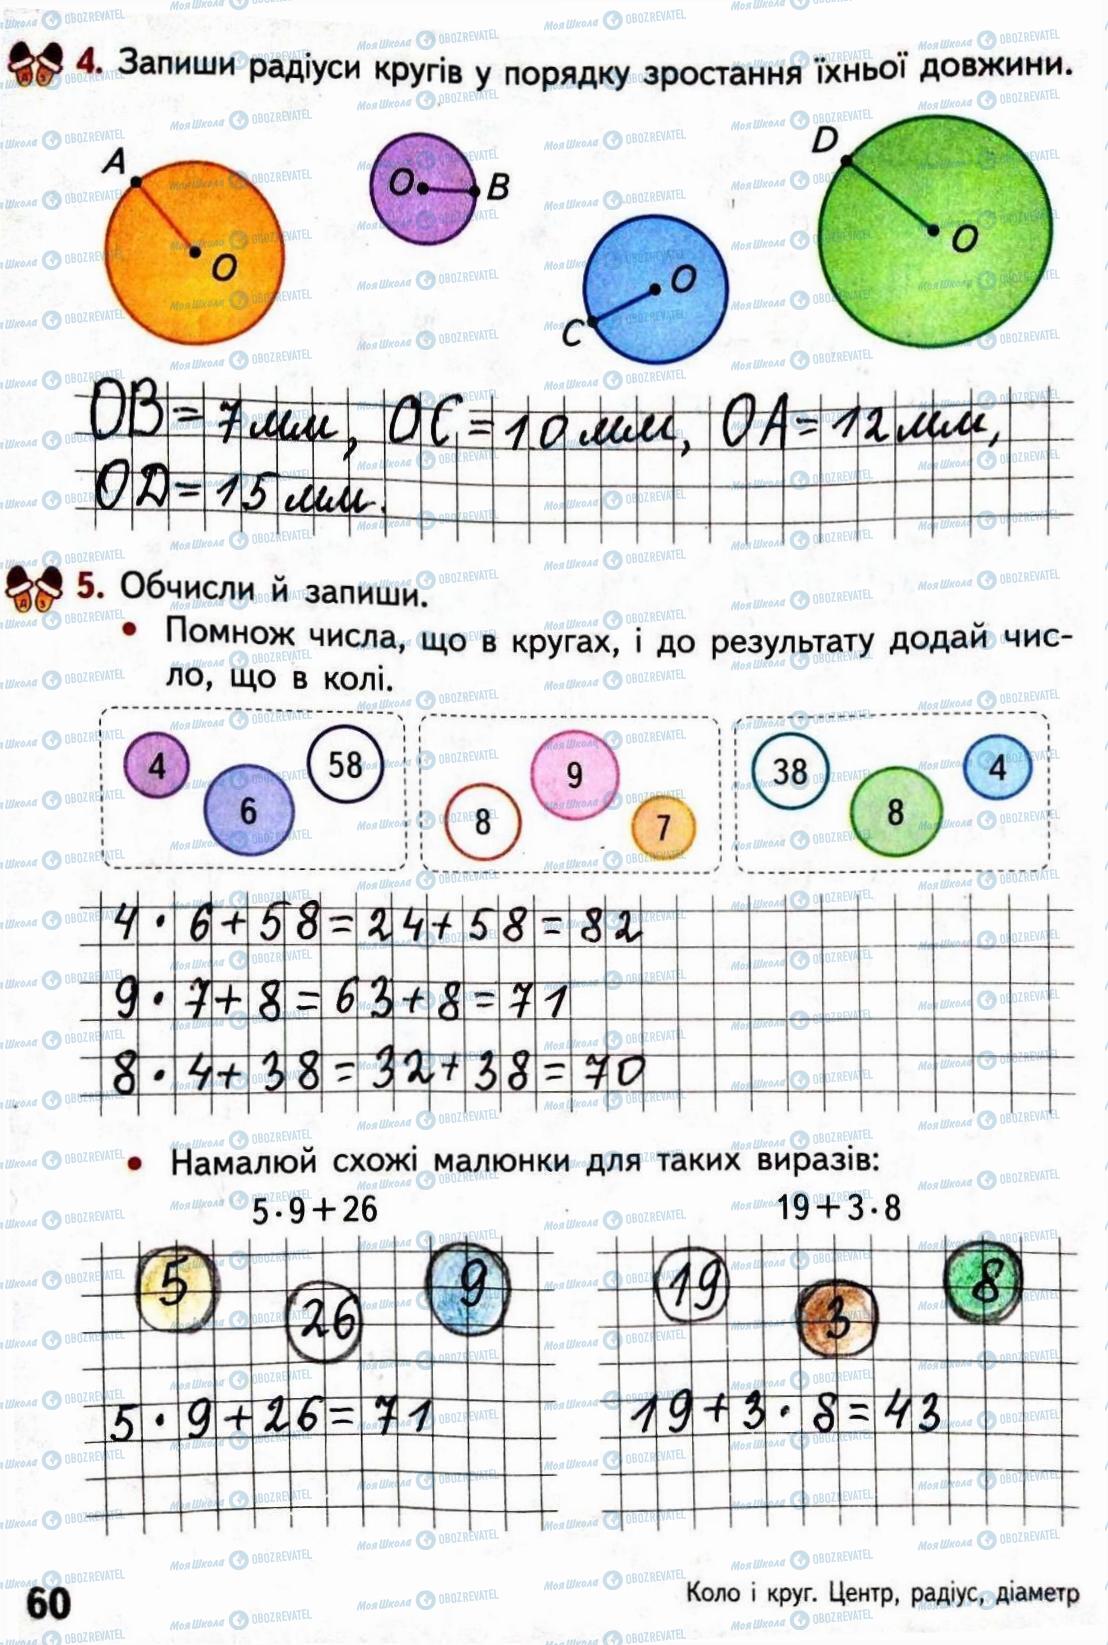 4. Запиши радіуси кругів у порядку зростання їхньої довжини.
A O
O B
O C
D O
OB = 7 мм, OC = 10 мм, OA = 12 мм,
OD = 15 мм.
5. Обчисли й запиши.
• Помнож числа, що в кругах, і до результату додай чис-
ло, що в колі.
4 6 58
8 9 7
38 8 4
4 · 6 + 58 = 24 + 58 = 82
9 · 7 + 8 = 63 + 8 = 71
8 · 4 + 38 = 32 + 38 = 70
• Намалюй схожі малюнки для таких виразів:
5·9+26 19+3·8
5 26 9
19 3 8
5 · 9 + 26 = 71
19 + 3 · 8 = 43
60
Коло і круг. Центр, радіус, діаметр
Моя Школа OBOZREVATEL